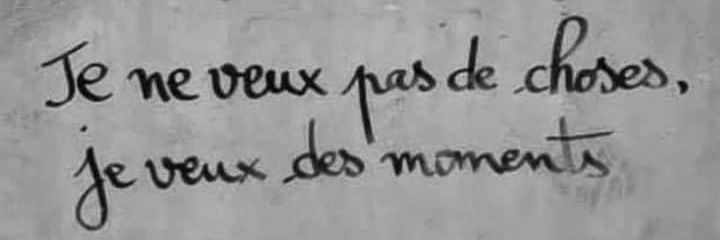 Je ne veux pas de choses,
je veux des moments